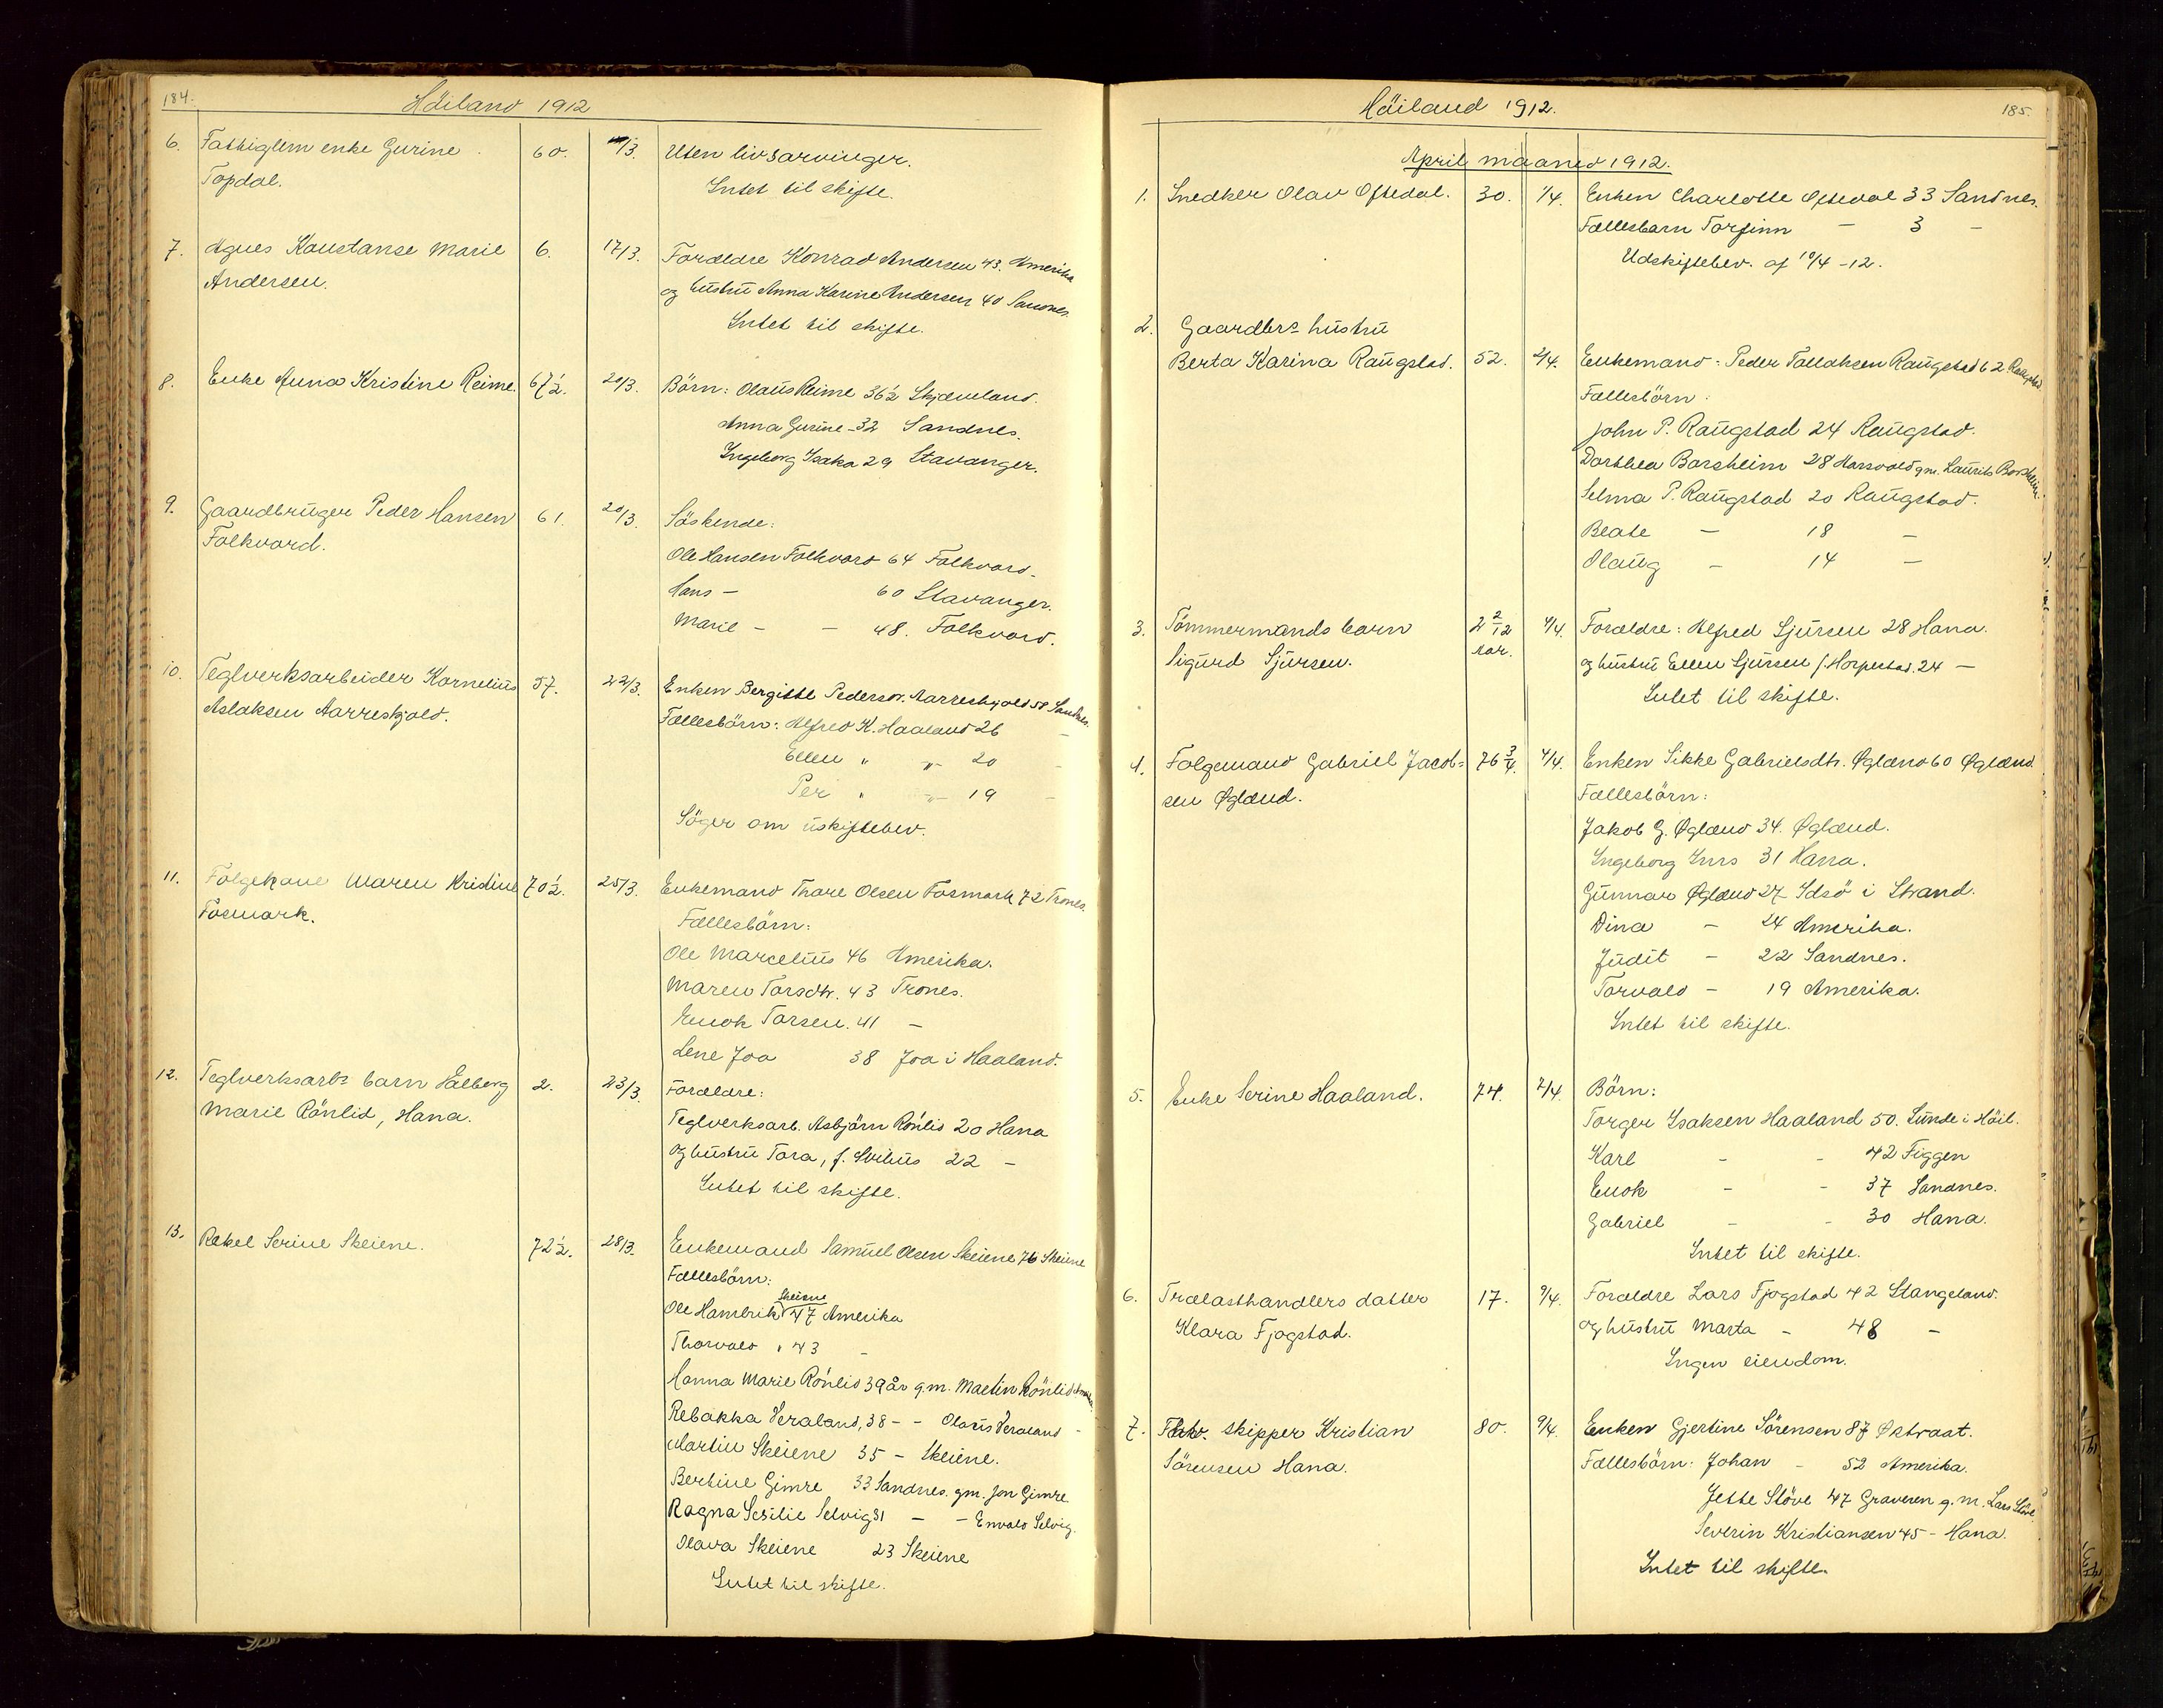 184.
Höiland 1912
6. Fattiglem enke Gurine 60. /3. Uten livsarvinger.
Topdal. Intet til skifte.
7. Agnes Konstanse Marie 6. 17/3. Forældre Konrad Andersen 43. Amerika
Andersen. og hustru Anna Karine Andersen 40 Sandnes.
Intet til skifte.
8. Enke Anna Kristine Reime. 67½. 20/3. Börn: Olaus Reime 36½ Skjæveland.
Anna Gurine - 32 Sandnes.
Ingeborg Isaka 29 Stavanger.
9. Gaardbruger Peder Hansen 61. 20/3. Söskende:
Folkvord. Ole Hansen Folkvord 64 Folkvord.
Hans - 60 Stavanger.
Marie - - 48. Folkvord.
10. Teglverksarbeider Kornelius 57. 22/3. Enken Bergitte Pedersdr. Aarreskjold 58 Sandnes.
Aslaksen Aarreskjold. Fællesbörn: Alfred K. Haaland 26 -
Ellen " " 20 -
Per " " 19 -
Söger om uskiftebev.
11. Folgekone Maren Kristine 70½. 25/3. Enkemand Thore Olsen Fosmark 72 Trones.
Fosmark. Fællesbörn:
Ole Marcelius 46 Amerika.
Maren Torsdtr. 43 Trones.
Enok Torsen. 41 -
Lene Joa 38 Joa i Haaland.
12. Teglverksarb. barn Valberg 2. 23/3. Forældre:
Marie Rönlid, Hana. Teglverksarb. Asbjörn Rönlid 20 Hana
og hustru Tora, f. 22 -
Intet til skifte.
13. Rakel Serine Skeiene. 72½. 28/3. Enkemand Samuel Olsen Skeiene 76 Skeiene
Fællesbörn:
Ole Hambrik Skeiene 47 Amerika
Thorvald " 43 -
Hanna Marie Rönlid 39 år g.m. Martin Rönlid
Rebakka Veraland, 38 - - Olaus Veraland -
Martin Skeiene 35 - Skeiene.
Bertine Gimre 33 Sandnes. gm. Jon Gimre
Ragna Sesilie Selvig 31 - - Envald Selvig.
Olava Skeiene 23 Skeiene
Intet til skifte.
185.
Höiland 1912.
April maaned 1912.
1. Snedker Olav Oftedal. 30. 1/4. Enken Charlotte Oftedal 33 Sandnes.
Fællesbarn Torfinn - 3 -
Udskiftebev. af 10/4 -12.
2. Gaardbrs hustru
Berta Karina Raugstad. 52. 2/4. Enkemand: Peder Tollaksen Raugstad 62 Raugstad.
Fællesbörn:
John P. Raugstad 24 Raugstad.
Dorthea Borsheim 28 gm. Laurits Borsheim.
Selma P. Raugstad 20 Raugstad.
Beate - 18 -
Olaug - 14 -
3. Tömmermands barn 2 2/12 4/4. Forældre: Alfred Sjursen 28 Hana.
Sigurd Sjursen. Aar. og hustru Ellen Sjursen f. Horpestad. 24 -
Intet til skifte.
4. Folgemand Gabriel Jacob= 76 3/4. 4/4. Enken Sikke Gabrielsdtr. Øglænd 60 Øglænd.
sen Øglænd. Fællesbörn:
Jakob G. Øglænd 34. Øglænd.
Ingeborg 31 Hana.
Gunnar Øglænd 27 Idsö i Strand.
Dina - 24 Amerika.
Judit - 22 Sandnes.
Torvald - 19 Amerika.
Intet til skifte.
5. Enke Serine Haaland. 74. 7/4. Börn:
Torger Isaksen Haaland 50. Lunde i Höil.
Karl - - 42 Figgen
Enok - - 37 Sandnes.
Gabriel - - 30 Hana.
Intet til skifte.
6. Trælasthandlers datter 17. 9/4. Forældre Lars Fjogstad 42 Stangeland.
Klara Fjogstad. og hustru Marta - 48 -
Ingen eiendom.
7. skipper Kristian 80. 9/4. Enken Gjertine Sörensen 87 Østraat.
Sörensen Hana. Fællesbörn: Johan - 52 Amerika.
Jette Stöve 47 Graveren g.m. Lars Stöve.
Severin Kristiansen 45 - Hana.
Intet til skifte.